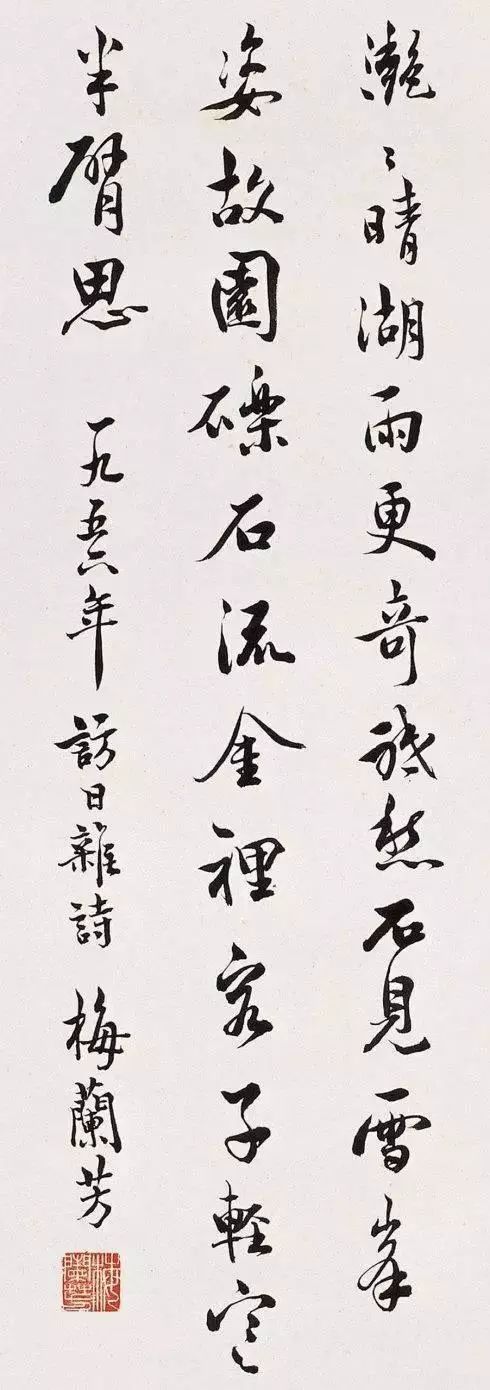 灧〻晴湖雨更奇祇愁不見雪峯
姿故園礫石流金裡客子軽寒
半臂思 一九五六年 訪日雜詩 梅蘭芳